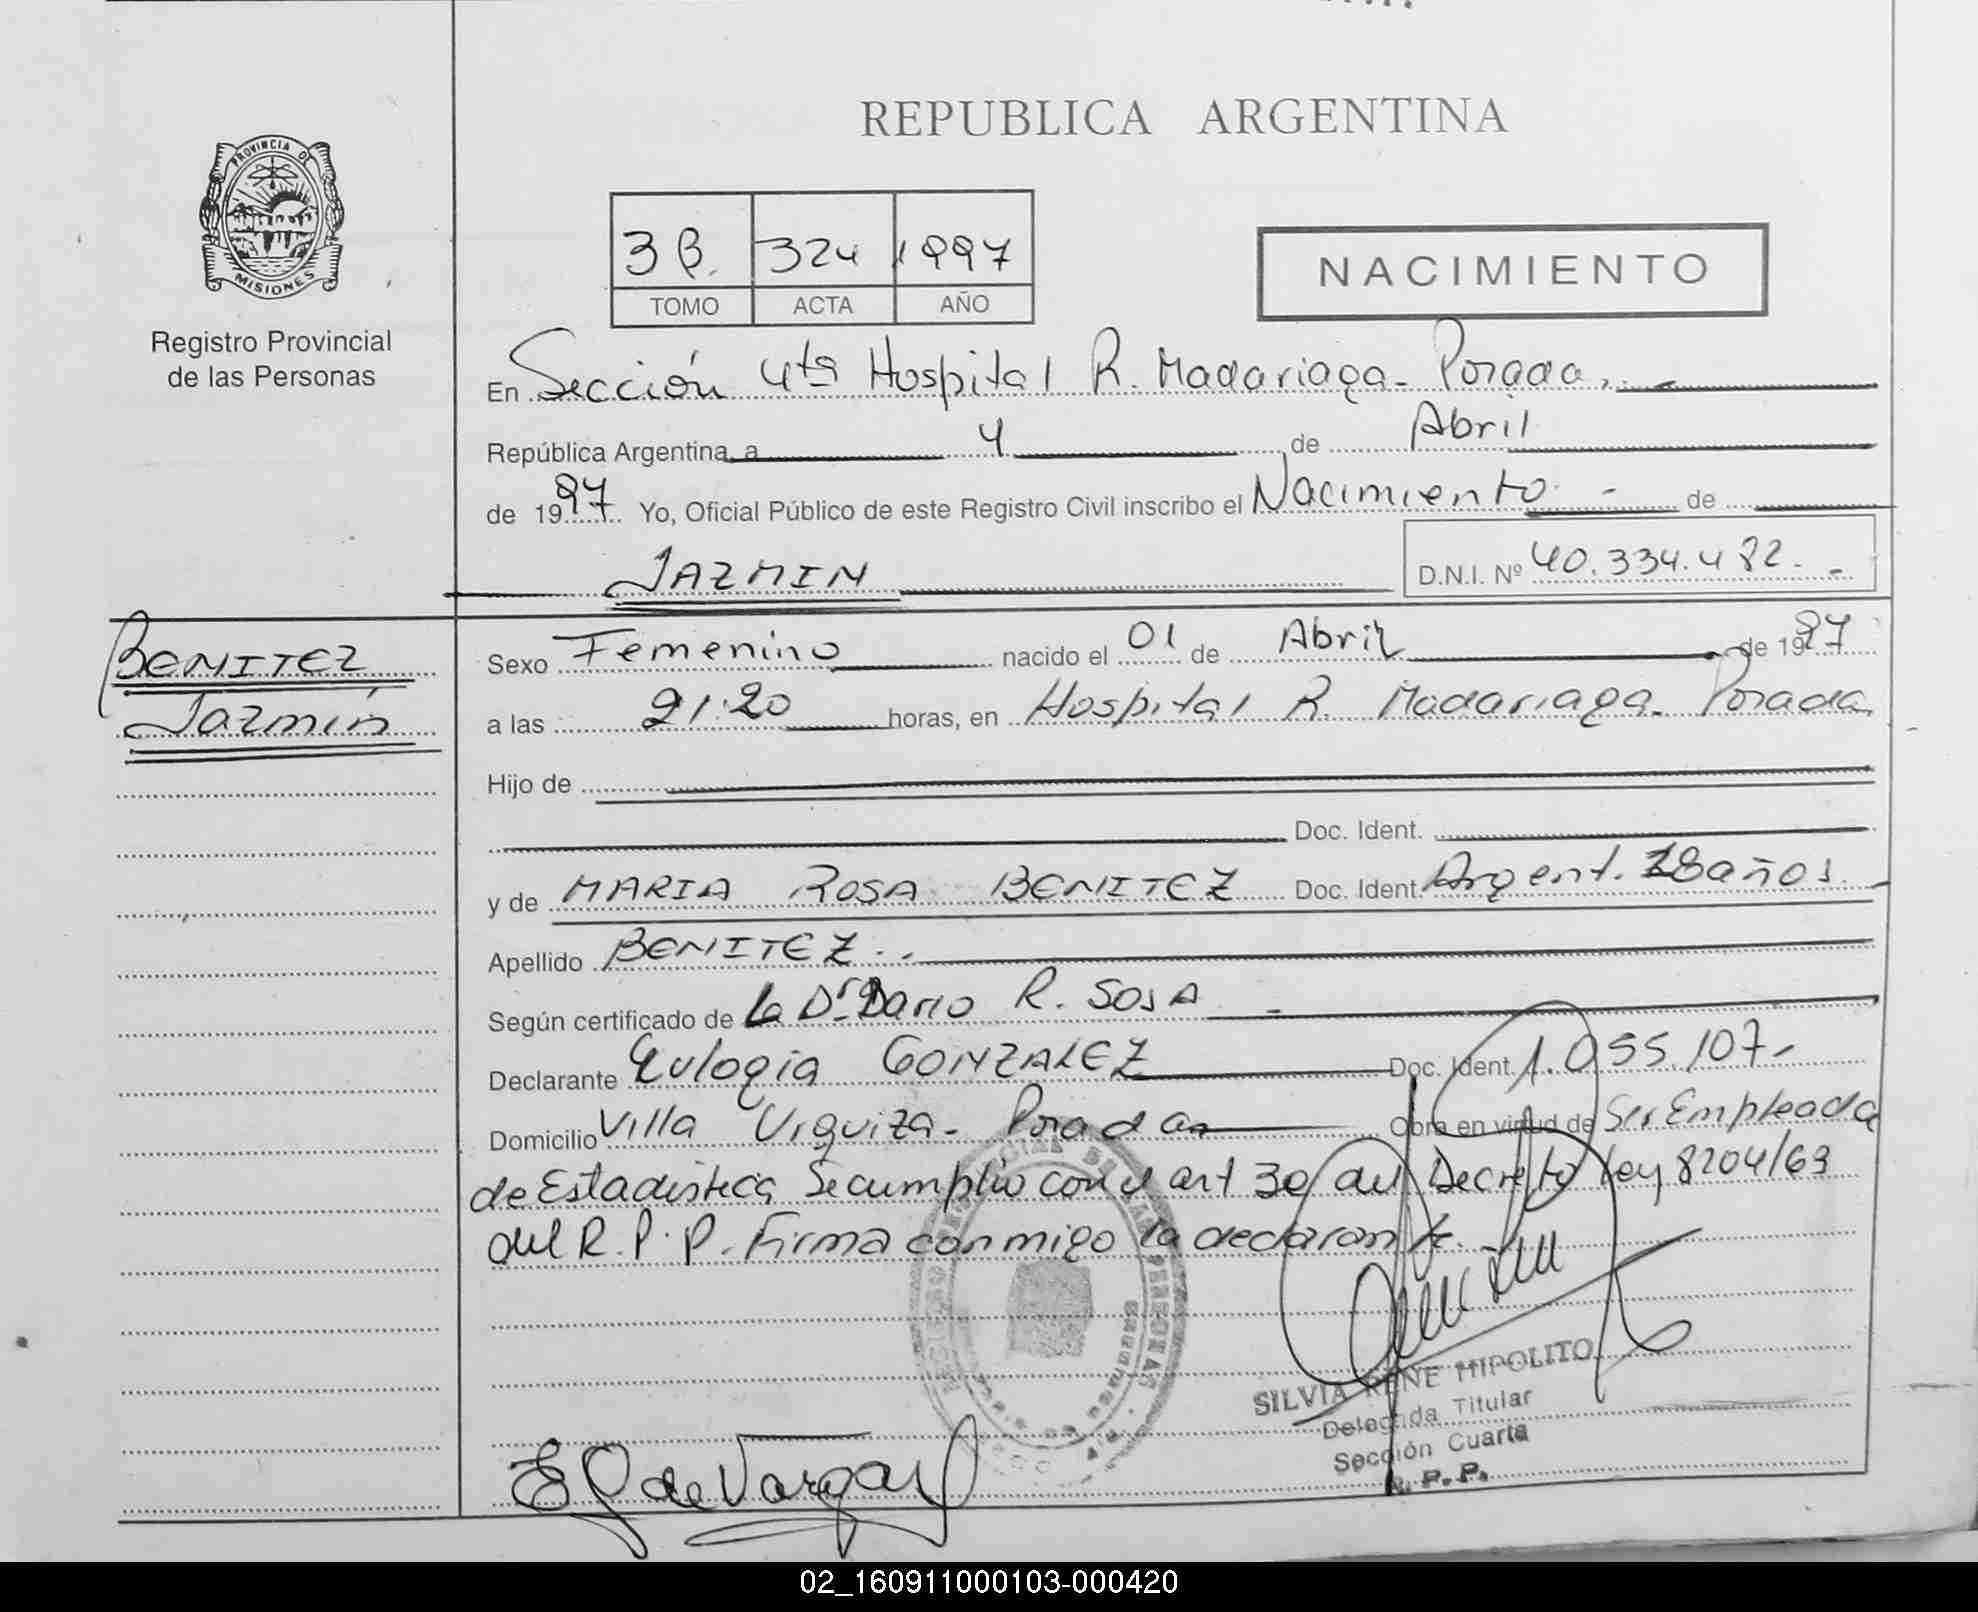 REPUBLICA ARGENTINA
PROVINCIA DE
MISIONES
Registro Provincial
de las Personas
3 B. 324 1997
TOMO ACTA AÑO
NACIMIENTO
En Sección 4ta Hospital R. Madariaga - Posadas.
República Argentina, a 4 de Abril
de 1997 Yo, Oficial Público de este Registro Civil inscribo el Nacimiento - de
JAZMIN D.N.I. Nº 40.334.482. -
BENITEZ
Jazmín
Sexo Femenino nacido el 01 de Abril de 1997
a las 21:20 horas, en Hospital R. Madariaga. Posadas
Hijo de
Doc. Ident.
y de MARIA ROSA BENITEZ Doc. Ident. Argent. 18 años
Apellido BENITEZ. -
Según certificado de Dr. Dario R. SOSA -
Declarante Eulogia GONZALEZ Doc. Ident 1.055.107-
Domicilio Villa Urquiza - Posadas Obra en virtud de Ser Empleada
de Estadistica Se cumplió con el art 30 del Decreto Ley 8204/63
del R. P. P. Firma conmigo la declarante.
SILVIA RENE HIPOLITO
Delegada Titular
Sección Cuarta
R. P. P.
E G de Vargas
02_160911000103-000420